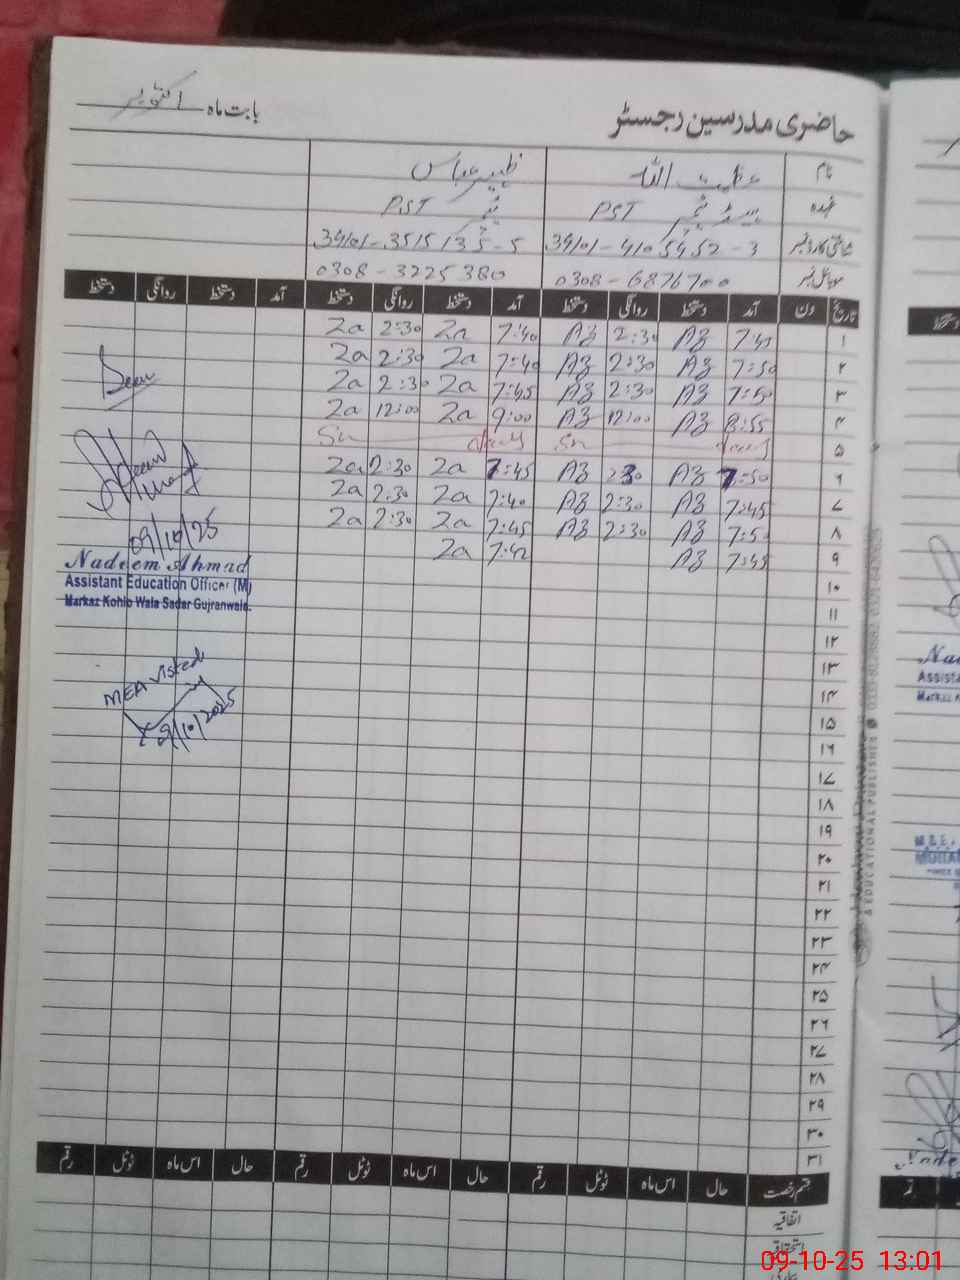 حاضری مدرسین رجسٹر
بابت ماہ اکتوبر
نام عظمت اللہ ظہیر عباس
عہدہ ہیڈ ٹیچر PST ٹیچر PST
شناختی کارڈ نمبر 34101-4105452-3 34101-3515135-5
موبائل نمبر 0308-6876700 0308-3225380
تاریخ دن آمد دستخط روانگی دستخط آمد دستخط روانگی دستخط آمد دستخط روانگی دستخط
۱ 7:45 AZ 2:30 AZ 7:40 Za 2:30 Za
۲ 7:50 AZ 2:30 AZ 7:40 Za 2:30 Za
۳ 7:50 AZ 2:30 AZ 7:45 Za 2:30 Za
۴ 8:55 AZ 12:00 AZ 9:00 Za 12:00 Za
۵ Sn Sn
۶ 7:50 AZ 2:30 AZ 7:45 Za 2:30 Za
۷ 7:45 AZ 2:30 AZ 7:40 Za 2:30 Za
۸ 7:50 AZ 2:30 AZ 7:45 Za 2:30 Za
۹ 7:45 AZ 7:42 Za
۱۰
۱۱
۱۲
۱۳
۱۴
۱۵
۱۶
۱۷
۱۸
۱۹
۲۰
۲۱
۲۲
۲۳
۲۴
۲۵
۲۶
۲۷
۲۸
۲۹
۳۰
۳۱
09/10/25
Nadeem Ahmad
Assistant Education Officer (M)
Markaz Kohlo Wala Sadar Gujranwala.
MEA visited
9/10/2025
قسم رخصت حال اس ماہ ٹوٹل رقم حال اس ماہ ٹوٹل رقم حال اس ماہ ٹوٹل رقم
اتفاقیہ
استحقاقیہ
& EDUCATIONAL PUBLISHER
09-10-25 13:01